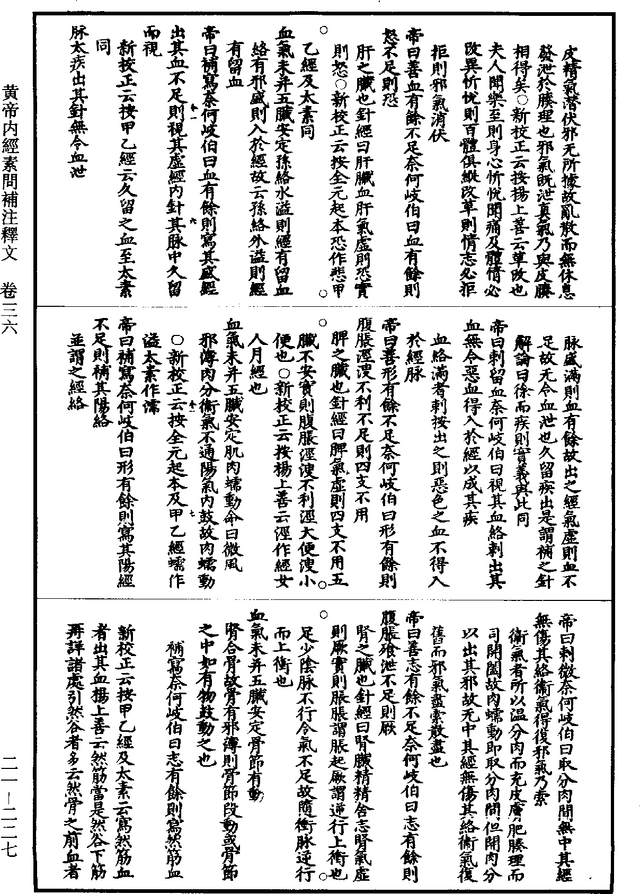 黄帝内經素問補注釋文　卷三六
二一—二二七
皮精氣潛伏邪无所據故亂散而無休息
發泄於腠理也邪氣既泄真氣乃與皮腠
相得矣○新校正云按楊上善云革改也
夫人聞樂至則身心忻悅聞痛及體情必
改異忻悅則百體俱縱改革則情志必拒
拒則邪氣消伏
帝曰善血有餘不足奈何岐伯曰血有餘則
怒不足則恐
肝之臟也針經曰肝臟血肝氣虛則恐實
則怒○新校正云按全元起本恐作悲甲
乙經及太素同
血氣未并五臟安定孫絡水溢則經有留血
絡有邪盛則入於經故云孫絡外溢則經
有留血
帝曰補寫奈何岐伯曰血有餘則寫其盛經
出其血不足則視其虛經内針其脉中久留
而視
新校正云按甲乙經云久留之血至太素
同
脉太疾出其針無令血泄
脉盛滿則血有餘故出之經氣虛則血不
足故无令血泄也久留疾出是謂補之針
解論曰徐而疾則實義與此同
帝曰刺留血奈何岐伯曰視其血絡刺出其
血無令惡血得入於經以成其疾
血絡滿者刺按出之則惡色之血不得入
於經脉
帝曰善形有餘不足奈何岐伯曰形有餘則
腹脹涇溲不利不足則四支不用
脾之臟也針經曰脾氣虛則四支不用五
臟不安實則腹脹涇溲不利涇大便溲小
便也○新校正云按楊上善云涇作經女
人月經也
血氣未并五臟安定肌肉蠕動命曰微風
邪薄肉分衛氣不通陽氣内鼓故肉蠕動
○新校正云按全元起本及甲乙經蠕作
溢太素作濡
帝曰補寫奈何岐伯曰形有餘則寫其陽經
不足則補其陽絡
並謂之經絡
帝曰刺微奈何岐伯曰取分肉間無中其經
無傷其絡衛氣得復邪氣乃索
衛氣者所以溫分肉而充皮膚肥腠理而
司開闔故肉蠕動即取分肉間但開肉分
以出其邪故无中其經無傷其絡衛氣復
舊而邪氣盡索散盡也
帝曰善志有餘不足奈何岐伯曰志有餘則
腹脹飧泄不足則厥
腎之臟也針經曰腎臟精精舍志腎氣虛
則厥實則脹脹謂脹起厥謂逆行上衝也
足少陰脉不行令氣不足故隨衝脉逆行
而上衝也
血氣未并五臟安定骨節有動
腎合骨故骨有邪薄則骨節段動或骨節
之中如有物鼓動之也
補寫奈何岐伯曰志有餘則寫然筋血
新校正云按甲乙經及太素云寫然筋血
者出其血楊上善云然筋當是然谷下筋
再詳諸處引然谷者多云然骨之前血者